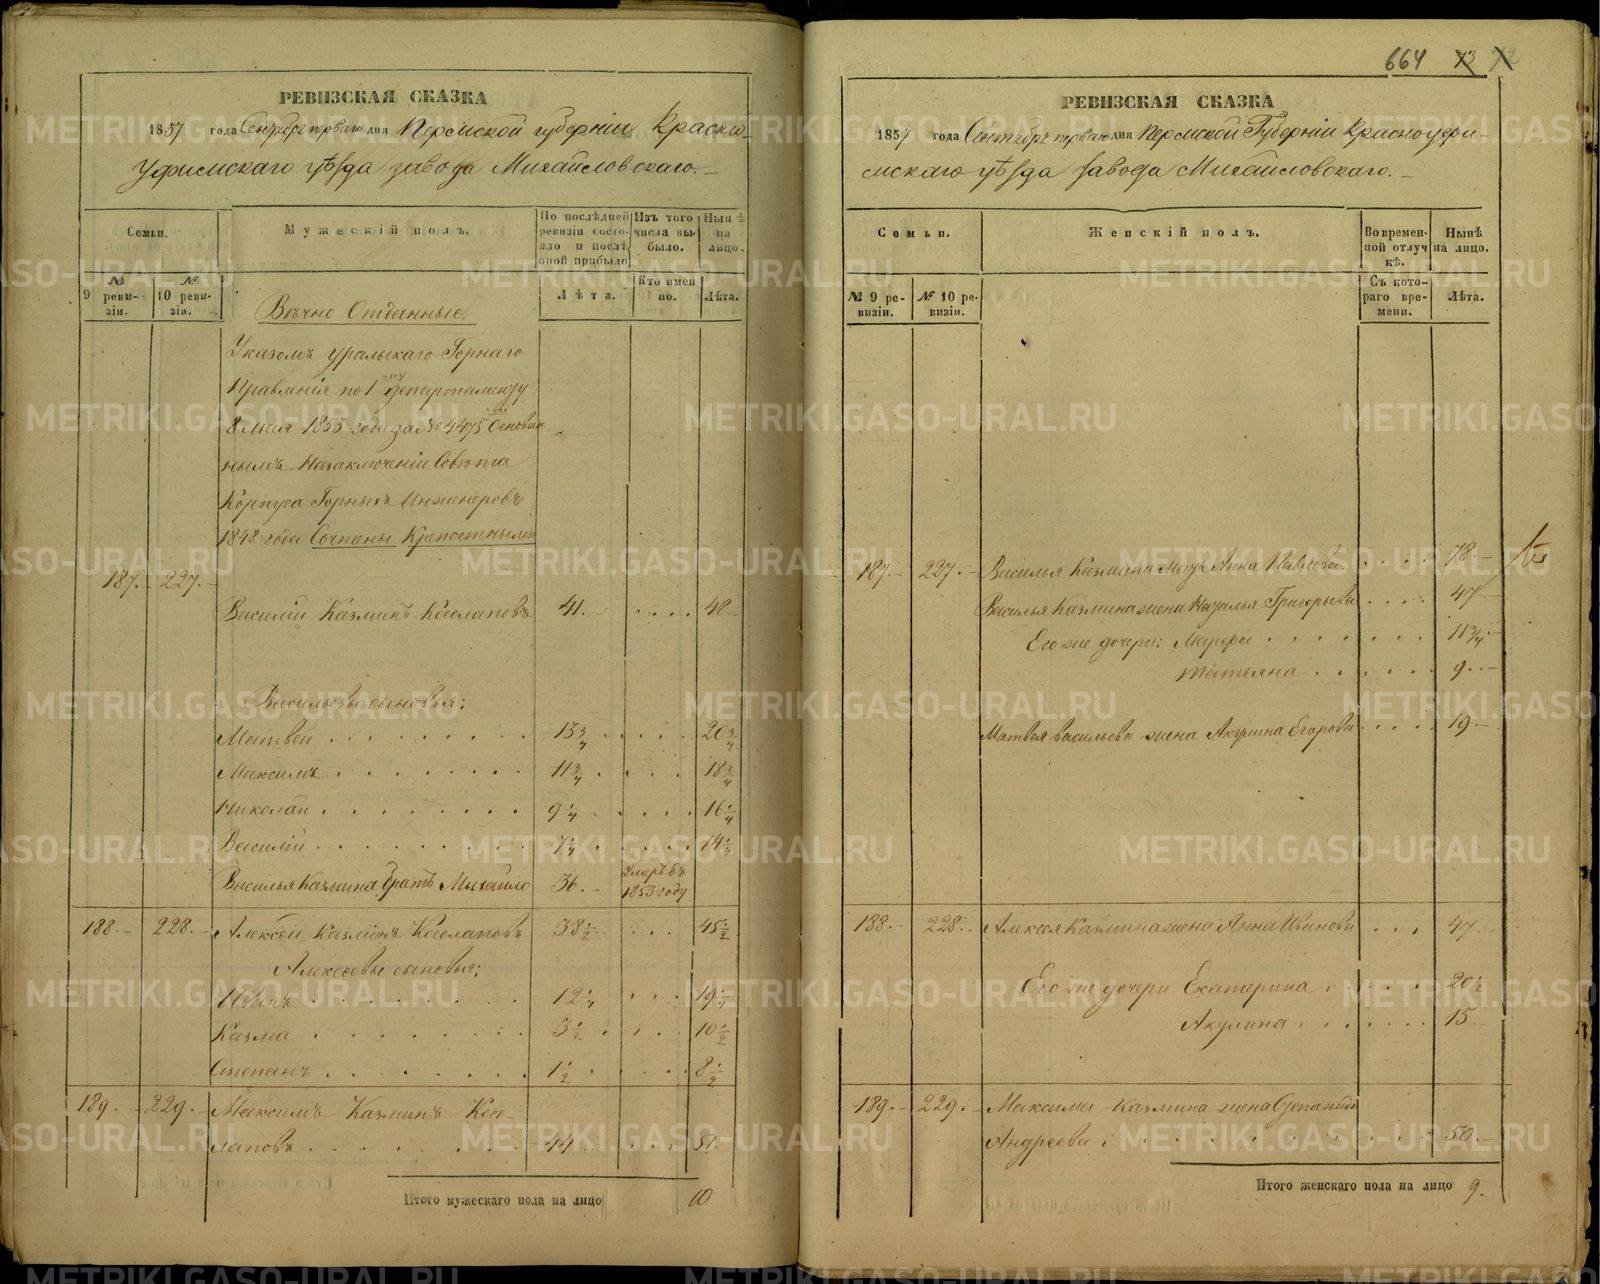 РЕВИЗСКАЯ СКАЗКА
1857 года Сентября перваго дня Пермской губерніи Красно-
Уфимскаго уѣзда завода Михайловскаго.
Семьи.
Мужескій полъ.
По послѣдней ревизіи состояло и послѣ оной прибыло
Изъ того числа выбыло.
Нынѣ на лицо.
№ 9 ревизіи.
№ 10 ревизіи.
Лѣта.
Кто именно.
Лѣта.
Вѣчно Отданные.
Указомъ Уральскаго Горнаго
Правленія по 1му Департаменту
8 Мая 1853 года за № 4475 Основан
нымъ На заключеніи Совѣта
Корпуса Горныхъ Инженеровъ
1848 года Сочтены Крепостными
187. 227.
Василій Казминъ Косолаповъ 41. 48
Васильевы сыновья:
Матвей 13 3/4 20 3/4
Максимъ 11 3/4 18 3/4
Николай 9 1/4 16 1/4
Василій 7 1/4 14 1/4
Василья Казмина братъ Михайло 36. Умеръ въ 1853 году
188. 228. Алексей Казминъ Косолаповъ 38 1/2 45 1/2
Алексеевы сыновья:
Иванъ 12 1/4 19 1/4
Казма 3 1/2 10 1/2
Степанъ 1 1/2 8 1/2
189. 229. Максимъ Казминъ Косо-
лаповъ 44 51.
Итого мужескаго пола на лицо 10
664 73
РЕВИЗСКАЯ СКАЗКА
1857 года Сентября перваго дня Пермской Губерніи Красноуфи-
мскаго уѣзда завода Михайловскаго.
Семьи.
Женскій полъ.
Во временной отлучкѣ.
Нынѣ на лицо.
№ 9 ревизіи.
№ 10 ревизіи.
Съ котораго времени.
Лѣта.
187. 227. Василья Казмина мать Анна Павлова 78.
Василья Казмина жена Наталья Григорьева 47
Его же дочери: Марфа 11 3/4
Татьяна 9.
Матвея Васильева жена Акулина Егорова 19
188. 228. Алексея Казмина жена Анна Иванова 47
Его же дочери Екатерина 20 1/2
Акулина 15
189. 229. Максима Казмина жена Степанида
Андреева 50
Итого женскаго пола на лицо 9.
METRIKI.GASO-URAL.RU